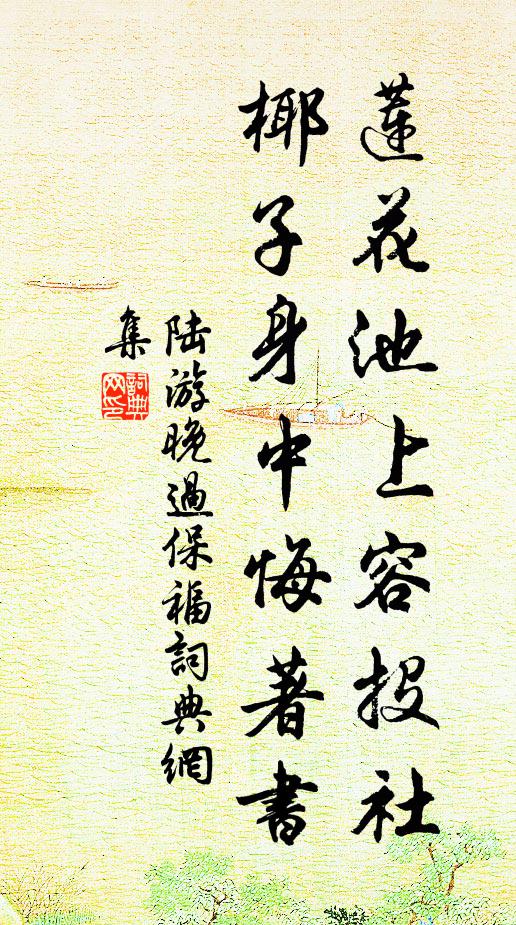 蓮花池上容投社
椰子身中悔著書
陸游晚過保福詞典網
集
詞典
网印